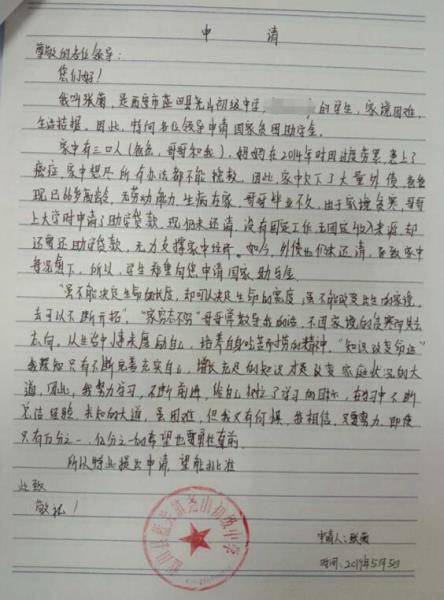 申 请
尊敬的各位领导：
您们好！
我叫张菊，是西安市蓝田县尧山初级中学， 的学生，家境困难，
生活拮据，因此，特向各位领导申请国家贫困助学金。
家中有三口人（爸爸，哥哥和我），妈妈在2014年时因过度劳累，患上了
癌症，家中想尽所有办法都不能挽救，因此，家中欠下了大量外债，爸爸
现已66岁高龄，无劳动能力，生病在家，哥哥毕业不久，由于家境贫寒，哥哥
上大学时申请了助学贷款，现仍未还请，没有固定工作，无固定收入来源，却
还需还助学贷款，无力支撑家中经济。如今，外债也仍未还请，导致家中
每况愈下，所以，学生郑重向您申请国家助学金。
“虽不能决定生命的长度，却可以决定生命的宽度，虽不能改变出生的家境，
去可以不断开拓”，“家穷志不穷”哥哥常教导我的话，不因家境的贫寒而失去
志向，从生活中慢来展励自己，培养自吃苦耐劳的精神。“知识改变命运”
我深知只有不断完善充实自己，增长足够的知识才是改变家庭状况的大
道，因此，我努力学习，不断前进，给自己树立了学习的目标，在学习中不断
总结经验，未知的大道，虽困难，但我又有何惧，我相信，只要努力，即使
只有百分之一，亿分之一的希望也要勇往直前。
所以特此提出申请，望能批准
此致
敬礼！
申请人：张菊
时间：2019年5月5日
初级中学